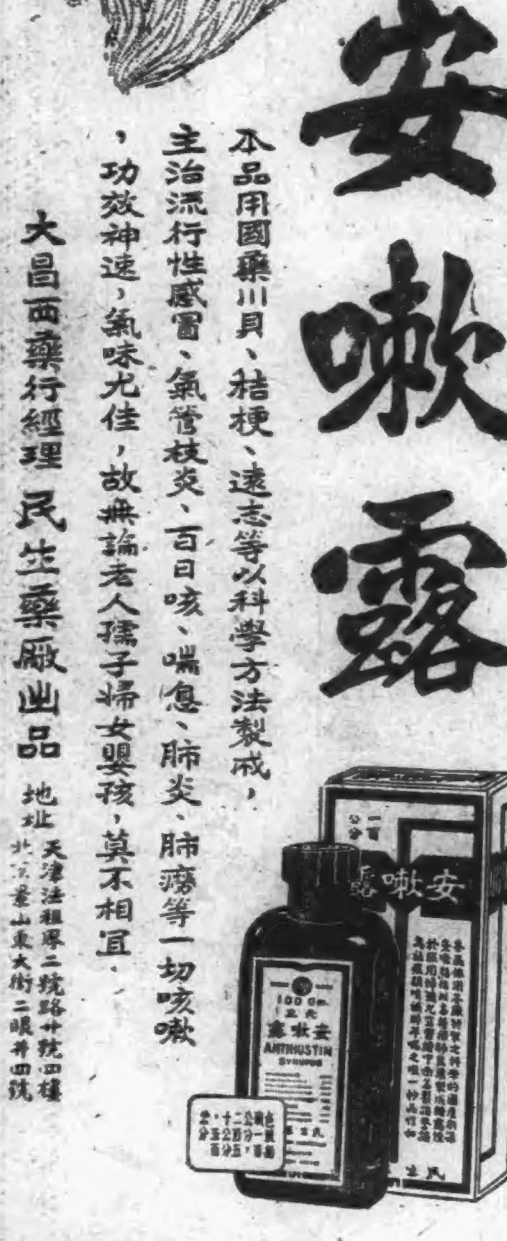 安嗽露
本品用國藥川貝、桔梗、遠志等以科學方法製成，
主治流行性感冒、氣管枝炎、百日咳、喘息、肺炎、肺癆等一切咳嗽
，功效神速，氣味尤佳，故無論老人孺子婦女嬰孩，莫不相宜．
大昌西藥行經理 民生藥厰出品 地址 天津法租界二號路廿號四樓
北京景山東大街二眼井四號
一百公分
安嗽露
100 Gm.
安嗽露
ANTIHUSTIN
SYRUPUS
民生